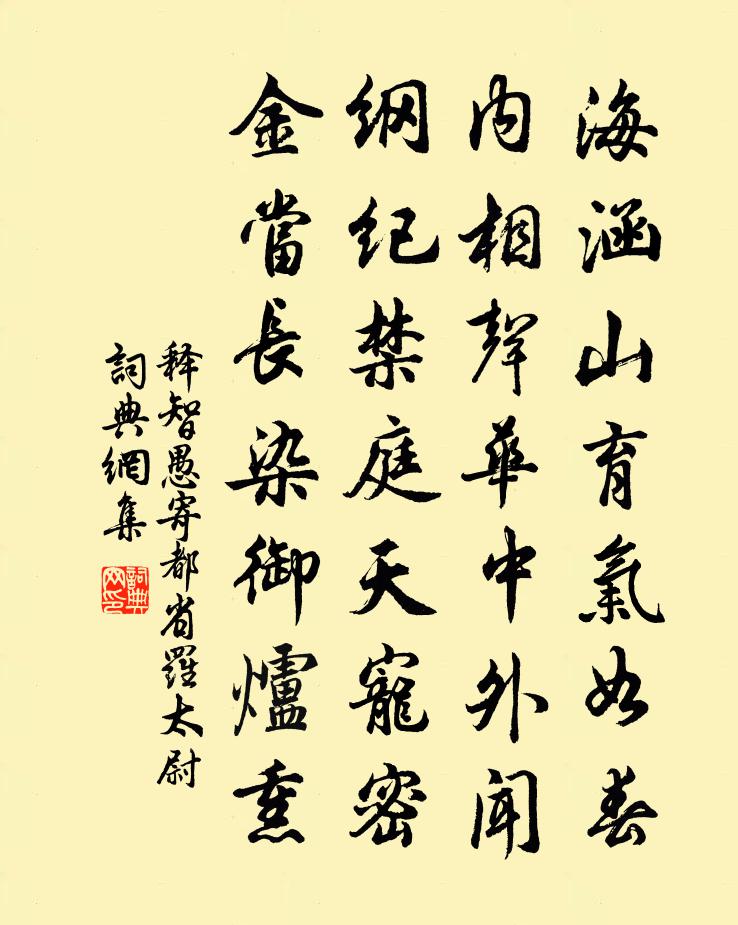 海涵山育氣如春
内相聲華中外闻
纲纪禁庭天寵密
金當長染御爐熏
释智愚寄都省羅太尉
詞典網集
詞典网印